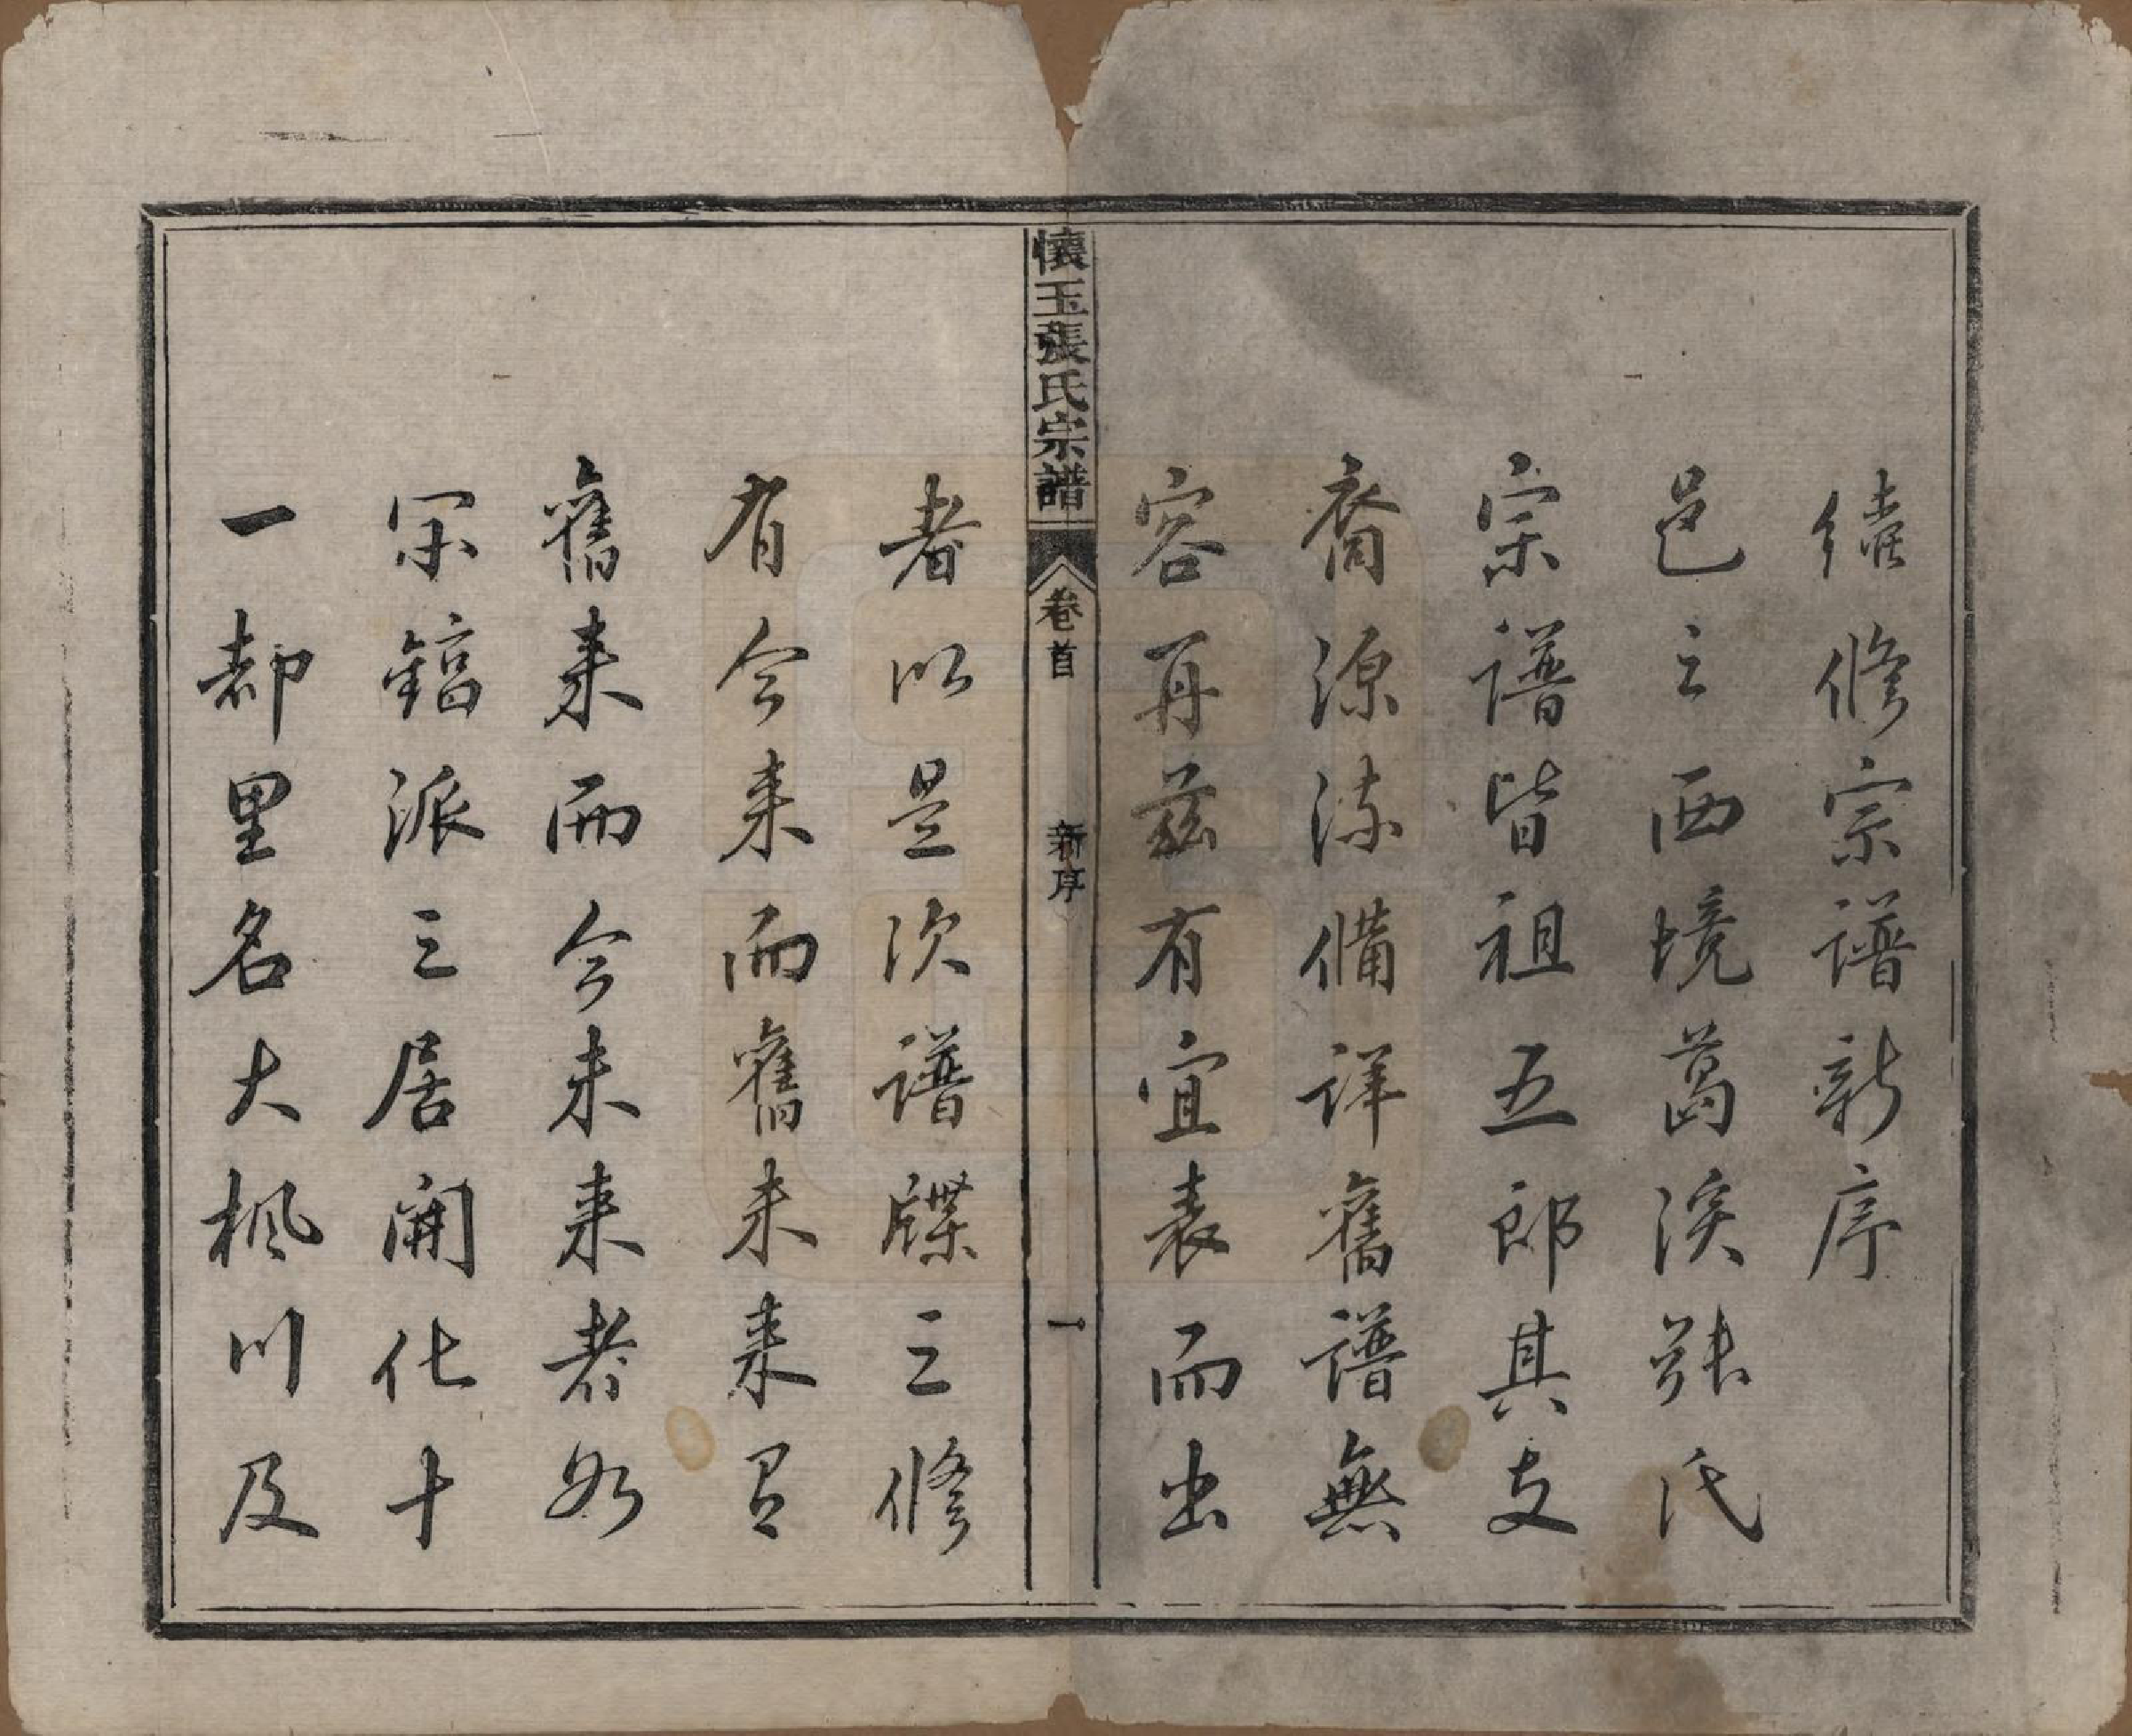 續修宗譜新序
邑之西境葛溪張氏
宗譜皆祖五郎其支
裔源流備詳舊譜無
容再茲有宜表而出
懷玉張氏宗譜
卷首
新序
一
者以是次譜牒之修
有今來而舊未來有
舊來而今未來者如
宋鎬派之居開化十
一都里名大楓川及